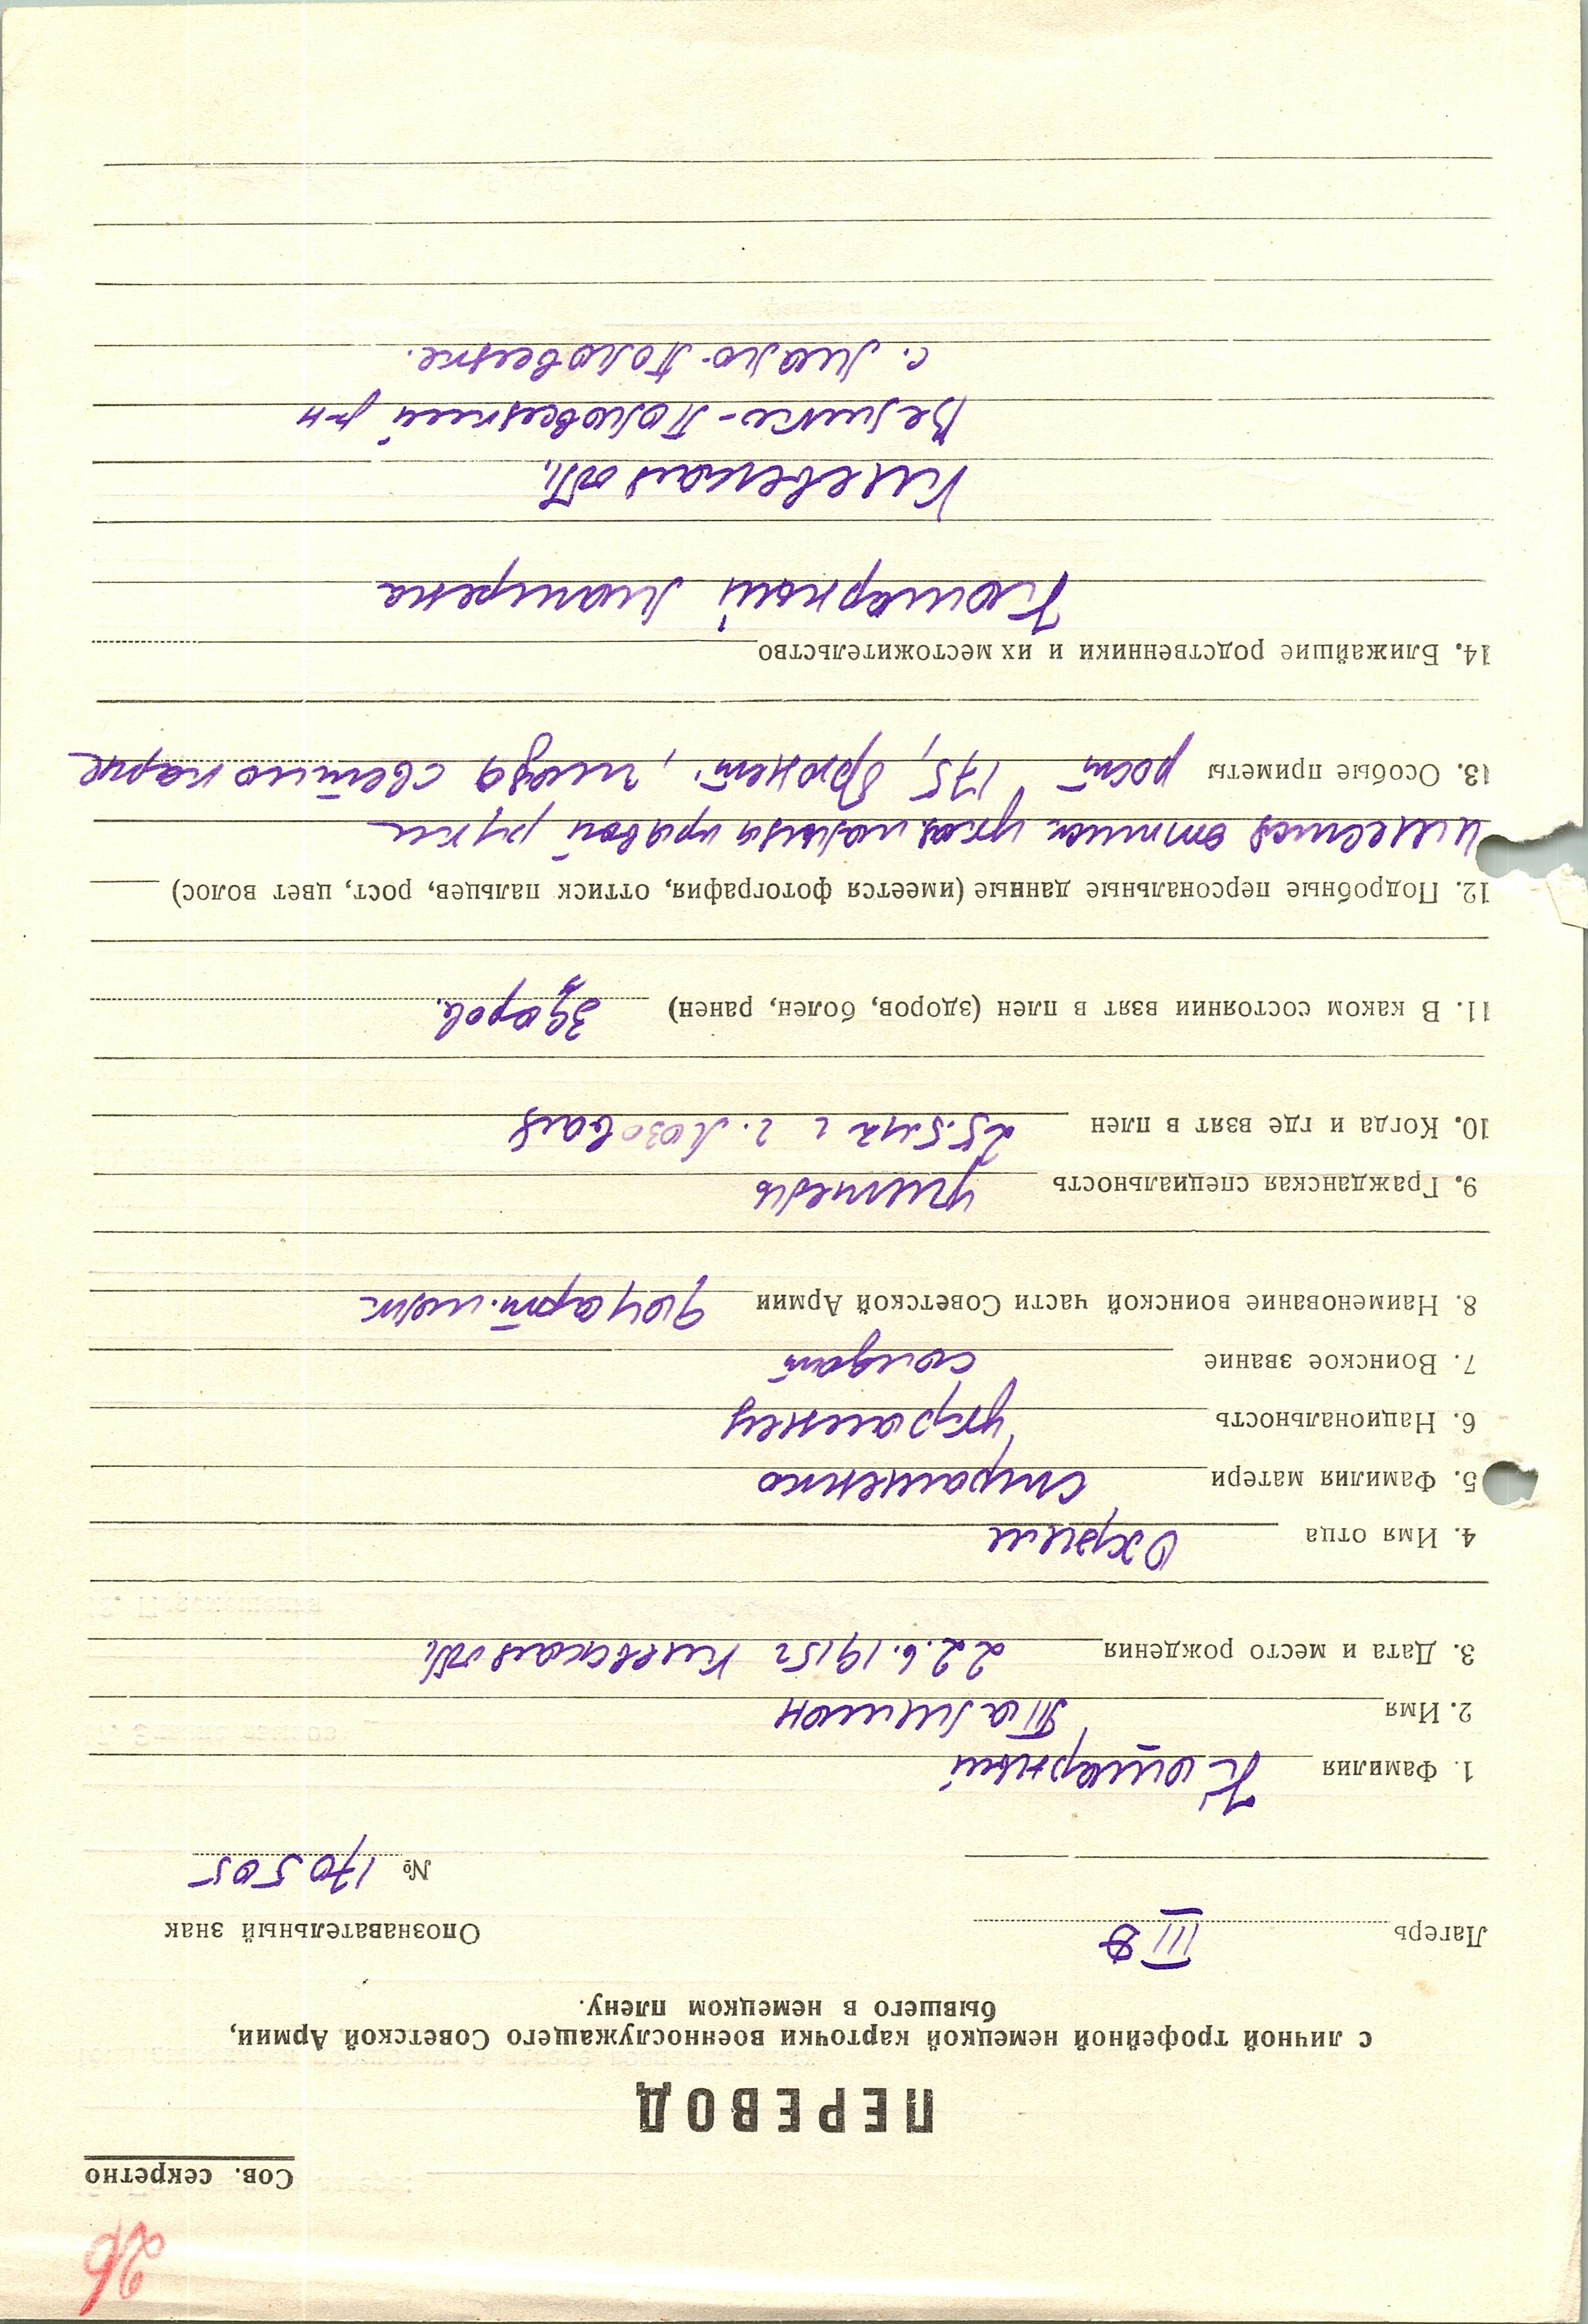 26
Сов. секретно
ПЕРЕВОД
с личной трофейной немецкой карточки военнослужащего Советской Армии,
бывшего в немецком плену.
Лагерь III В
Опознавательный знак
№ 170505
1. Фамилия Кошарный
2. Имя
3. Дата и место рождения 22.6.1915г Киевская обл.
4. Имя отца Охрим
5. Фамилия матери
6. Национальность украинец
7. Воинское звание солдат
8. Наименование воинской части Советской Армии арт. полк
9. Гражданская специальность учитель
10. Когда и где взят в плен 25.5.42 г г. Лозовая
11. В каком состоянии взят в плен (здоров, болен, ранен) здоров.
12. Подробные персональные данные (имеется фотография, оттиск пальцев, рост, цвет волос)
имеется оттиск указ. пальца правой руки
13. Особые приметы рост 175, брюнет, глаза светло карие
14. Ближайшие родственники и их местожительство
Кошарный
Киевская обл.
Велико-Половецкий р-н
с. Мало-Половецке.